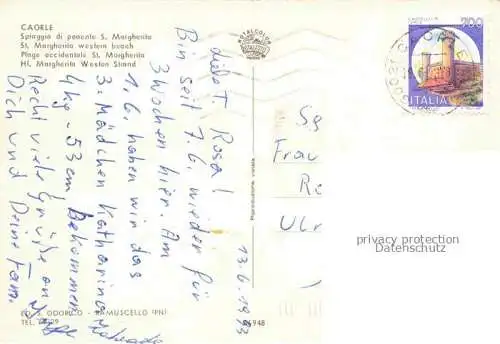 CAORLE
Spiaggia di ponente S. Margherita
St. Margherita western beach
Plage occidentale St. Margherita
Hl. Margherita Weston Strand
ITALCOLOR
700
ITALIA
13.6.1993
Rosa!
Bin seit 7.6. wieder für
3 Wochen hier. Am
1.6. haben wir das
3. Mädchen Katharina
4 kg - 53 cm Bekommen
Recht viele Grüße an
Dich und Deine Fam.
Riproduzione vietata
Sg
Frau
Re
Ulr
privacy protection
Datenschutz
ED. S. ODORICO - RAMUSCELLO (PN)
TEL.